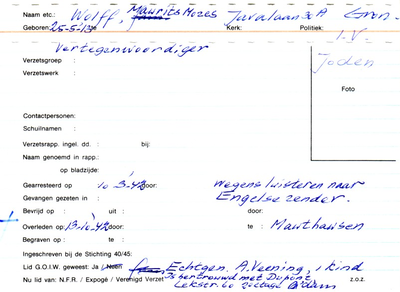 Naam etc.: Wolff, Maurits Mozes Javalaan 30A Gron.
Geboren: 25-5-'13 te Kerk: Politiek: I.V.
Vertegenwoordiger Joden
Verzetsgroep :
Verzetswerk :
Foto
Contactpersonen:
Schuilnamen :
Verzetsrapp. ingel. dd. : bij:
Naam genoemd in rapp.:
op bladzijde:
Gearresteerd op : 10-3-42 door: wegens luisteren naar
Gevangen gezeten in : Engelse zender.
Bevrijd op : uit : door:
Overleden op : 13-10-42 door: te : Mauthausen
Begraven op : te :
Ingeschreven bij de Stichting 40/45:
Lid G.O.I.W. geweest: Ja / Neen Echtgen. A. Veening, 1 kind
Nu lid van: N.F.R. / Expogé / Verenigd Verzet Is hertrouwd met Dupont z.o.z.